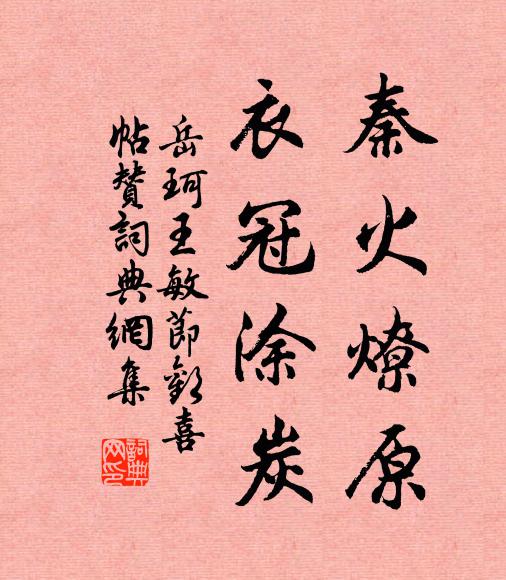 秦火燎原
衣冠涂炭
岳珂王敏節歡喜
帖贊詞典網集
詞典網印